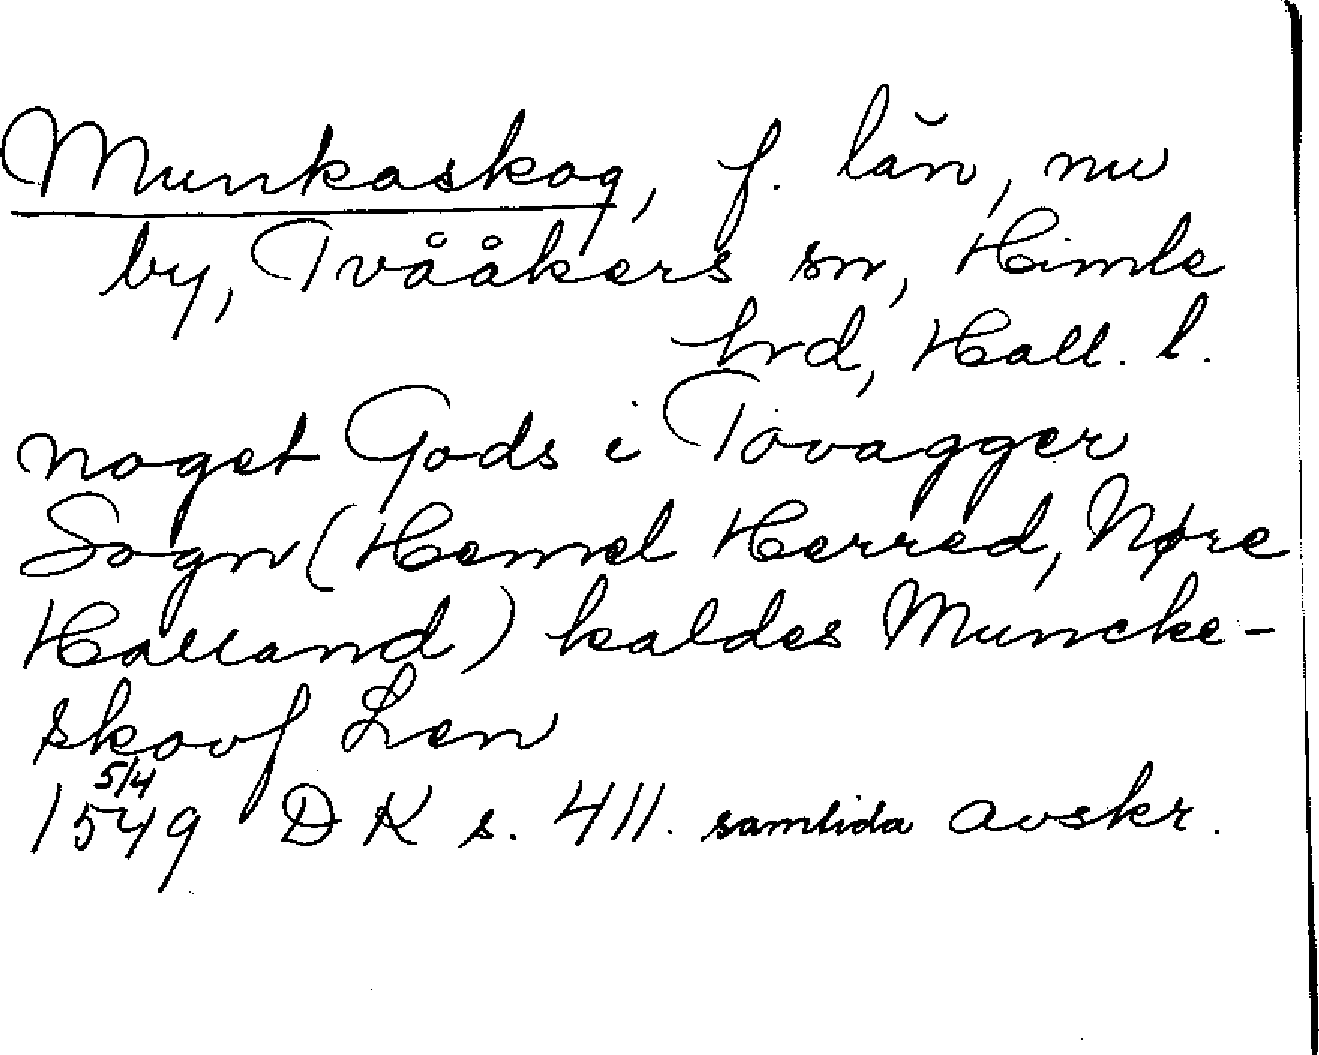 Munkaskog, f. län, nu
by, Tvååkers sn, Himle
hrd, Hall. l.
noget Gods i Tovagger
Sogn (Hemel Herred, Nøre
Halland) kaldes Muncke-
skovf Len
1549 5/4 DK s. 411. samtida avskr.